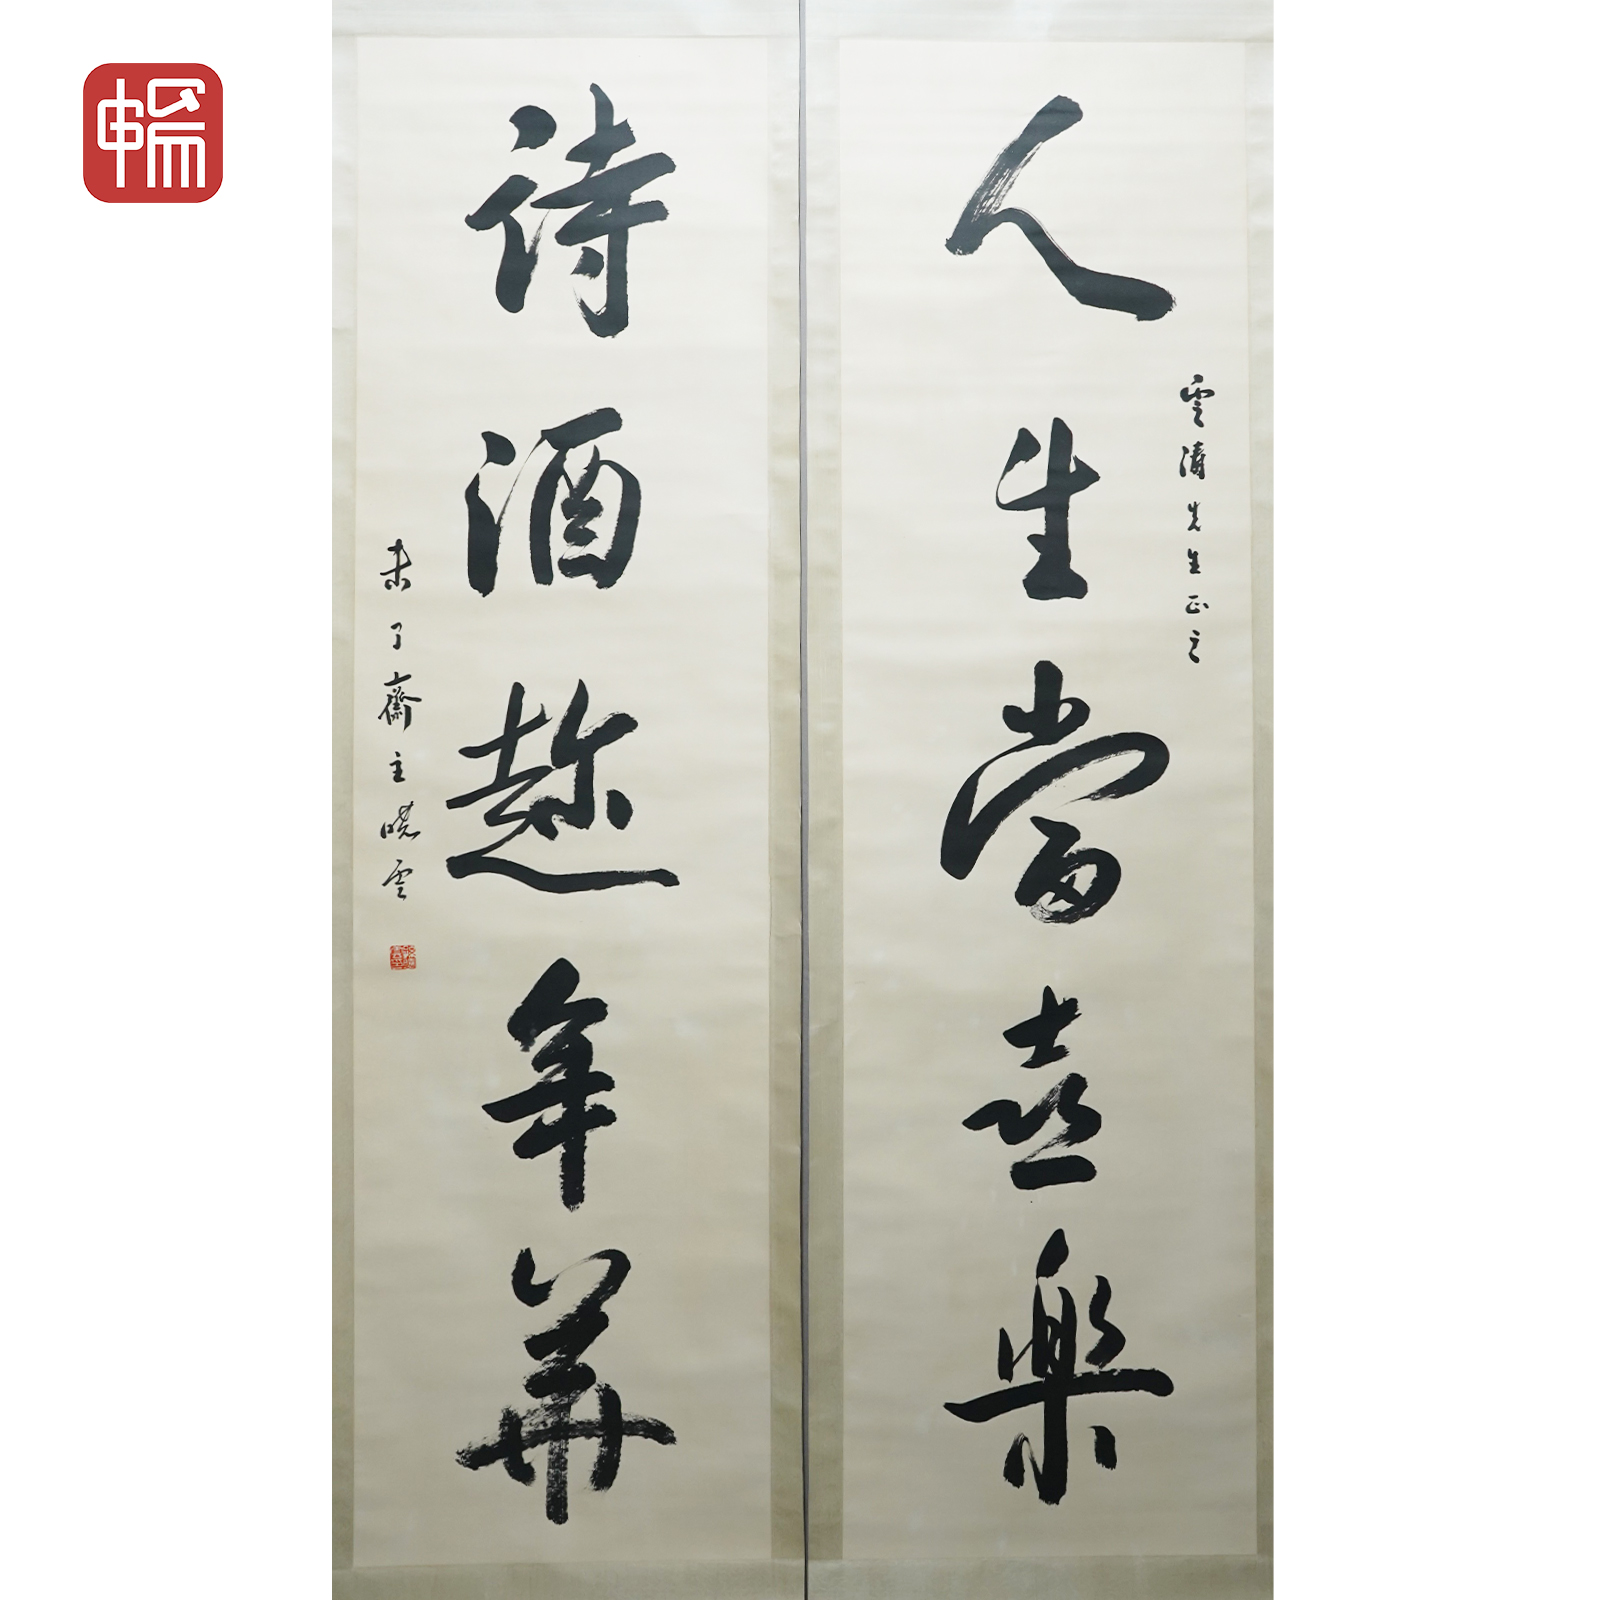 雲濤先生正之
人生當喜樂
詩酒趂年華
未了齋主曉雲